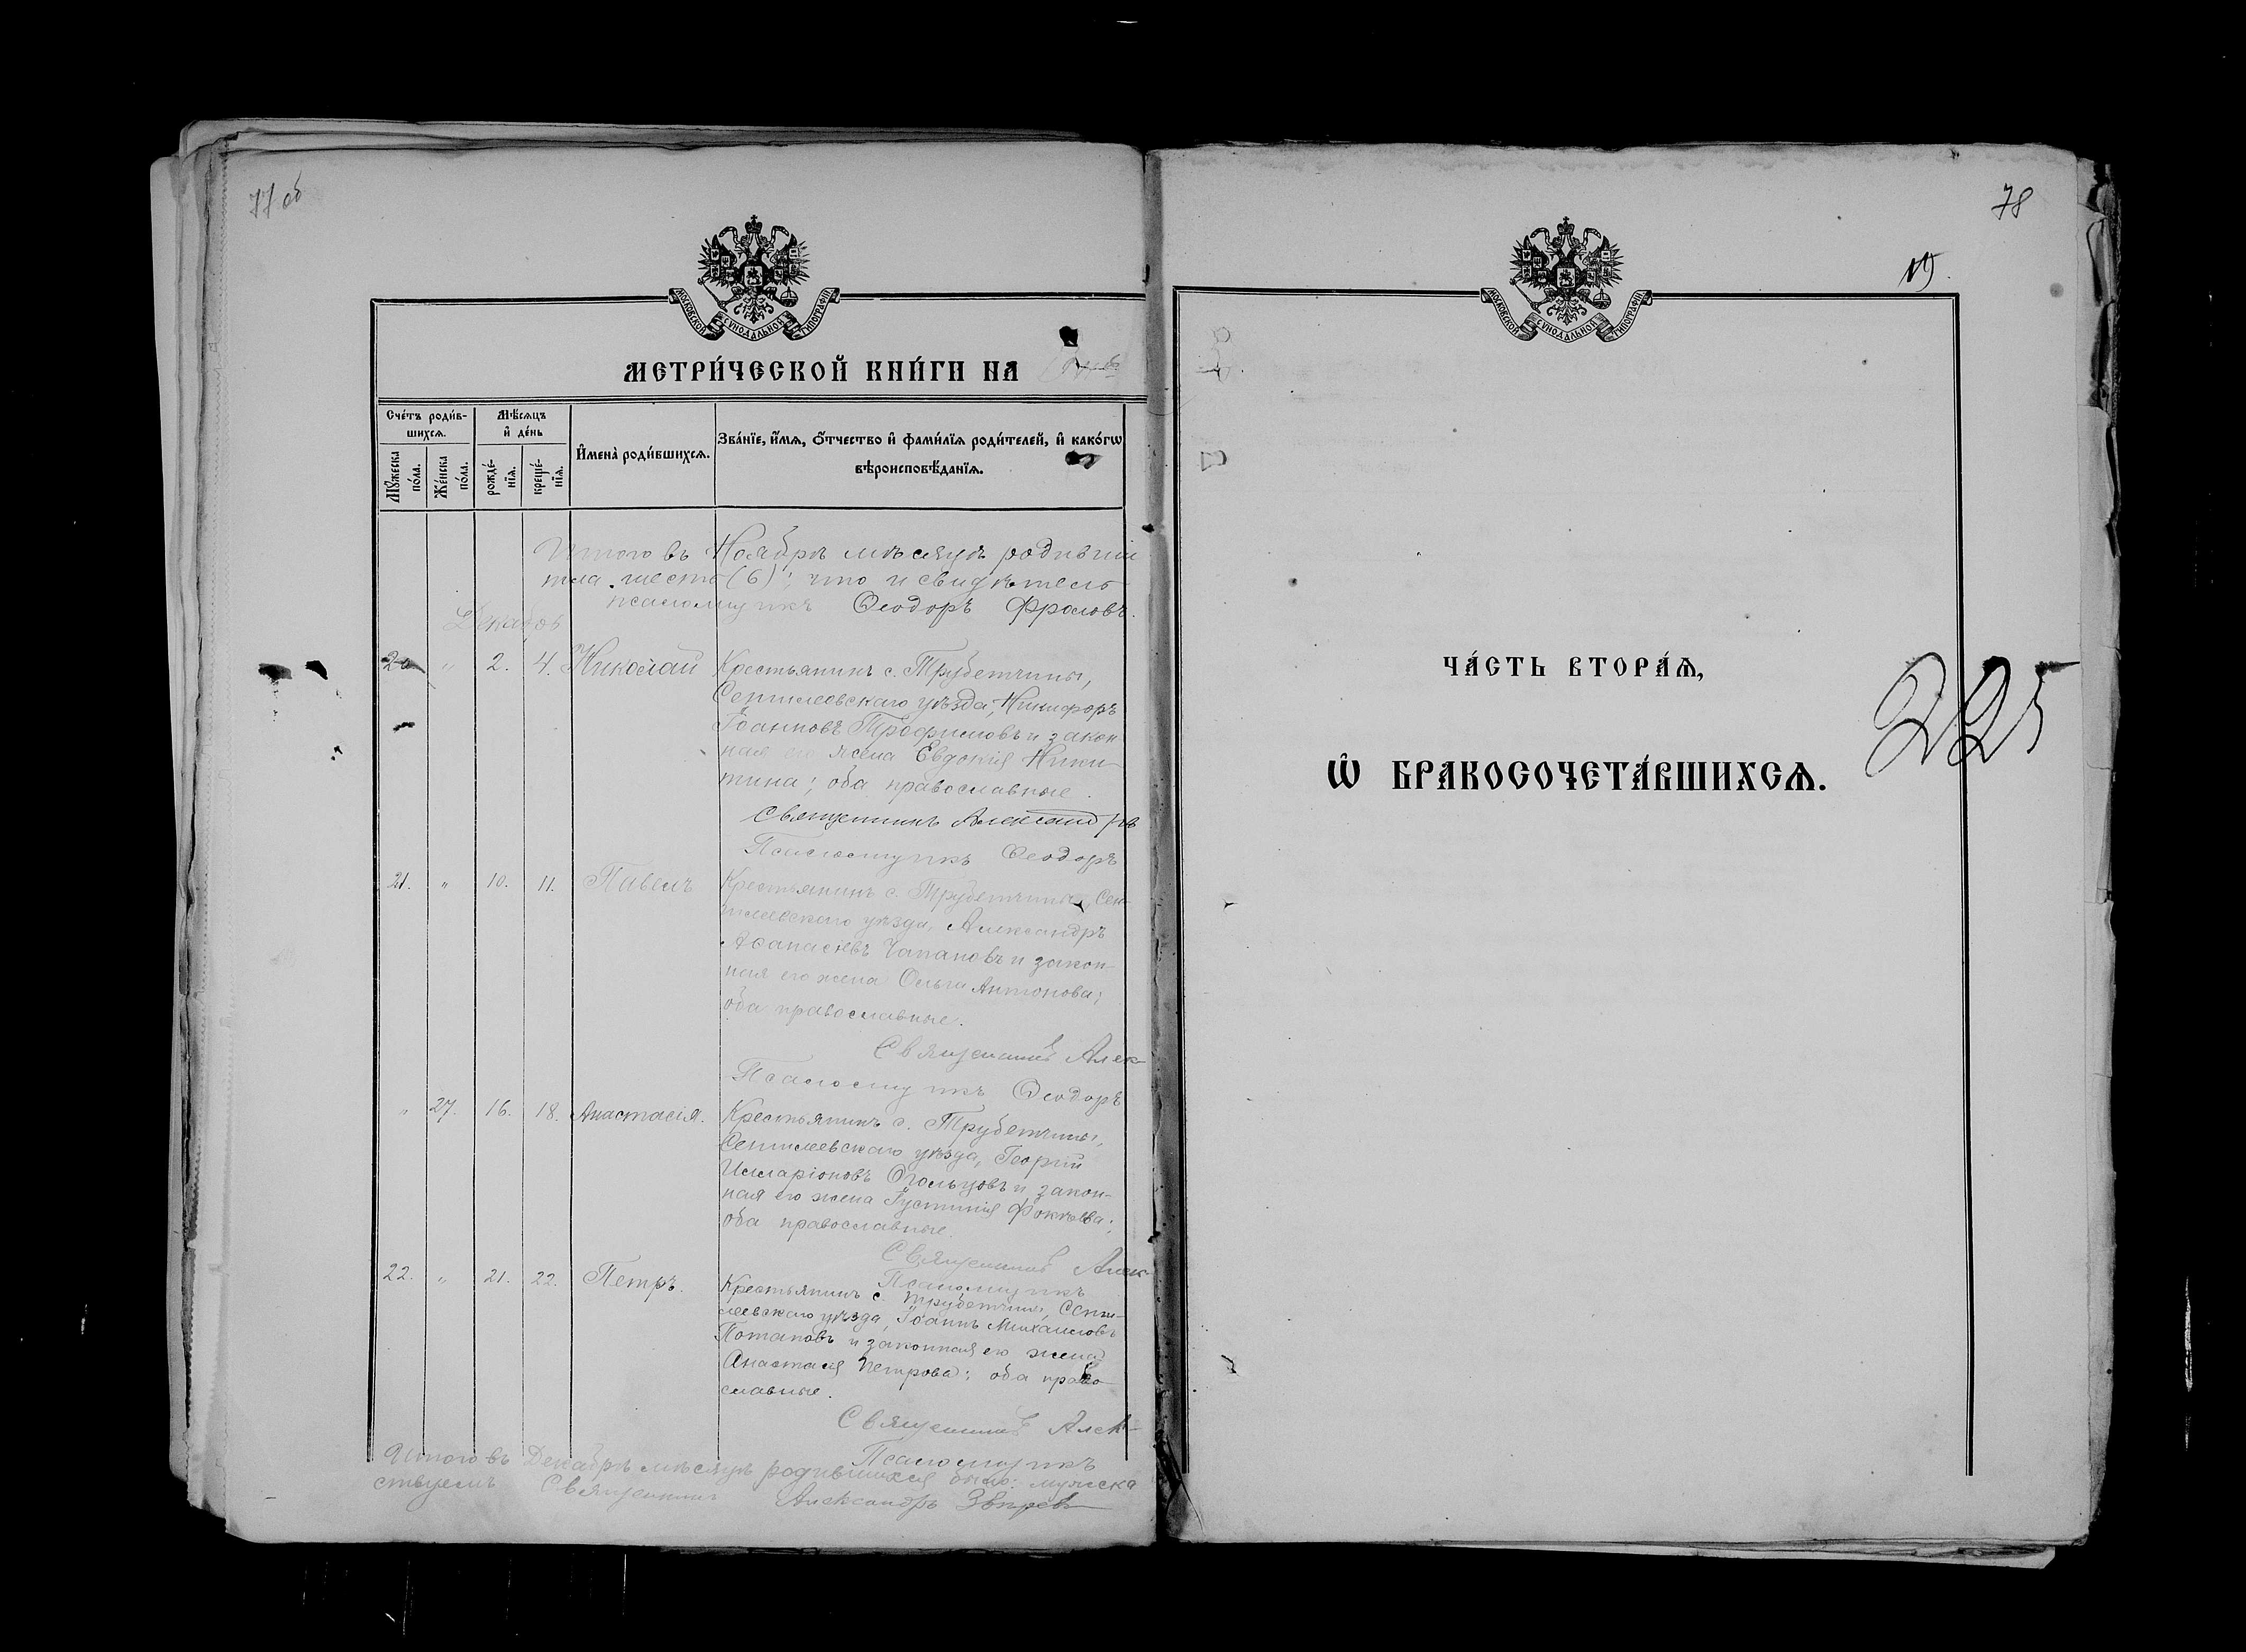 77 об
МОСКОВСКОЙ СѴНОДАЛЬНОЙ ТИПОГРАФІИ
МЕТРИ́ЧЕСКОЙ КНИ́ГИ НА
Сче́тъ роди́в-
шихсѧ.
Мѣ́сѧцъ
и҆ де́нь
И҆мена̀ роди́вшихсѧ.
Зва́нїе, и҆́мѧ, ѻ҆́тчество и҆ фами́лїѧ роди́телей, и҆ како́гѡ
вѣроисповѣ́данїѧ.
Мꙋ́жеска
по́ла.
Же́нска
по́ла.
рожде́-
нїѧ.
креще́-
нїѧ.
Итого въ Ноябрѣ мѣсяцѣ родивши
шесть (6); что и свидѣтель
псаломщикъ Ѳеодоръ Фроловъ.
Декабрь
" 2. 4. Николай Крестьянинъ с. Трубетчины,
Сенгилеевскаго уѣзда, Никифоръ
Іоанновъ Трофимовъ и закон
ная его жена Евдокія Ники-
тина; оба православные.
Священникъ Александръ
Псаломщикъ Ѳеодоръ
21. " 10. 11. Павелъ Крестьянинъ с. Трубетчины, Сен-
гилеевскаго уѣзда, Александръ
Аѳанасіевъ Чапановъ и закон-
ная его жена Ольга Антонова;
оба православные.
Священникъ Алек-
Псаломщикъ Ѳеодоръ
" 27. 16. 18. Анастасія. Крестьянинъ с. Трубетчины,
Сенгилеевскаго уѣзда, Георгій
Илларіоновъ Огольцовъ и закон-
ная его жена Іустинія Фокѣева;
оба православные.
Священникъ Алек-
Псаломщикъ
22. " 21. 22. Петръ. Крестьянинъ с. Трубетчины, Сенги-
леевскаго уѣзда, Іоаннъ Михаиловъ
Потаповъ и законная его жена
Анастасія Петрова; оба право-
славные.
Священникъ Алек-
Псаломщикъ
Итого въ Декабрѣ мѣсяцѣ родившихся было: мужеска
ствуемъ Священникъ Александръ Звѣревъ
78
19.
МОСКОВСКОЙ СѴНОДАЛЬНОЙ ТИПОГРАФІИ
ЧА́СТЬ ВТОРА́Ѧ,
Ѡ҆ БРАКОСОЧЕТА́ВШИХСѦ.
225